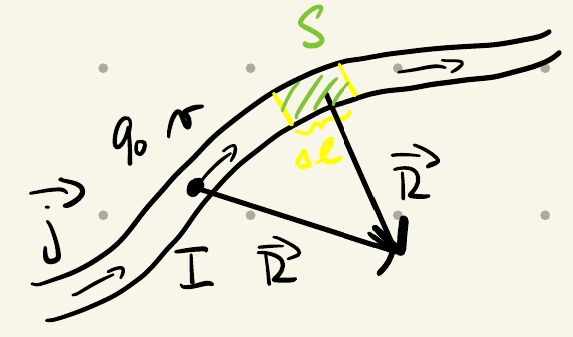 S
q₀ v
Δl
R⃗
j⃗
I R⃗